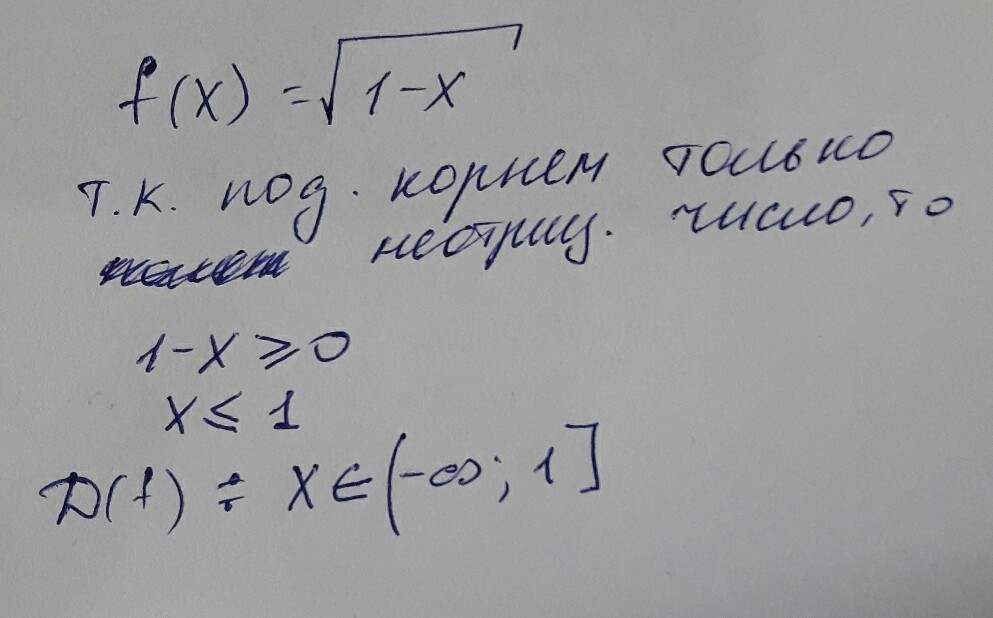 f(x) = √1-x
т.к. под. корнем только
неотриц. число, то
1-x ≥ 0
x ≤ 1
D(f) : x ∈ (-∞; 1]